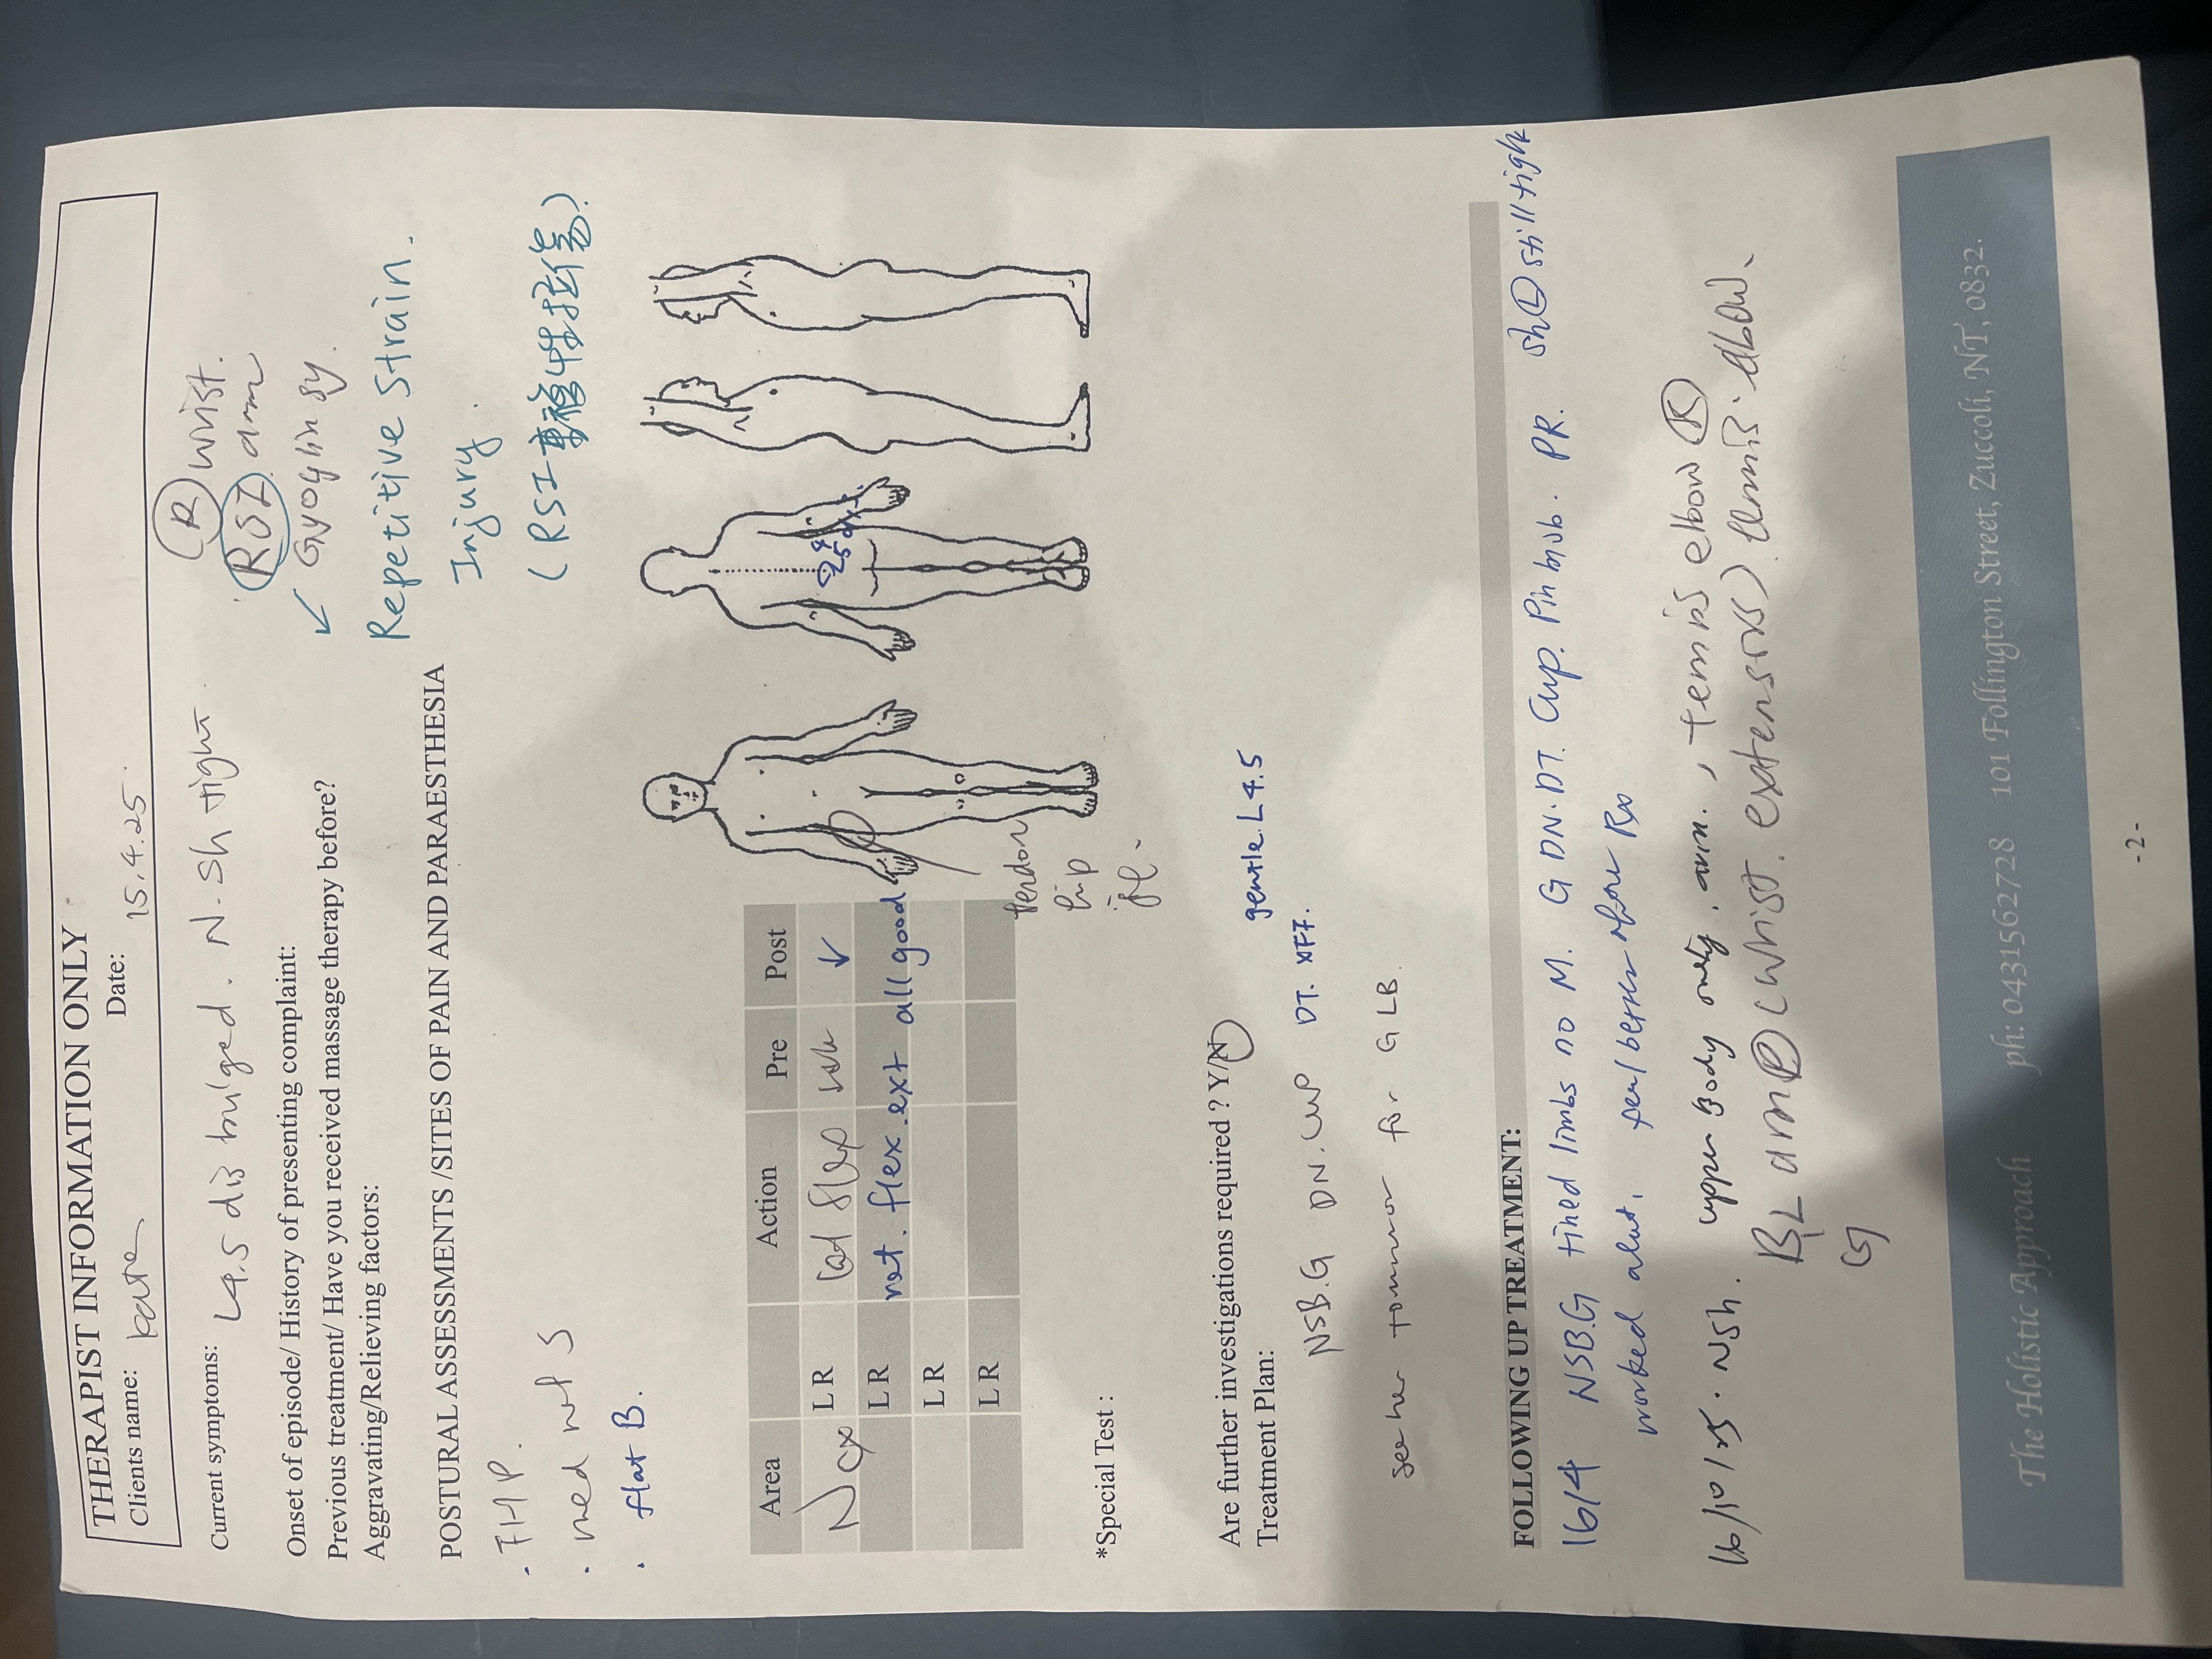 THERAPIST INFORMATION ONLY
Clients name: Kate Date: 15.4.25
Current symptoms: L4.5 dis bulged. N. sh tight.
(R) wrist.
RSI arm
Onset of episode/ History of presenting complaint:
Previous treatment/ Have you received massage therapy before?
Aggravating/Relieving factors:
Repetitive Strain
Injury.
(RSI 重複性拉傷)
POSTURAL ASSESSMENTS /SITES OF PAIN AND PARAESTHESIA
· FHP.
· med S
· flat B.
Area Action Pre Post
L R Lat flex ↓
L R flex. ext all good
L R
L R
hip
*Special Test :
Are further investigations required ? Y/N
Treatment Plan: gentle. L4.5
NSB.G DN. cup DT.
see her tomorrow for G LB.
FOLLOWING UP TREATMENT:
16/4 NSB.G tired limbs no M. G DN. DT. Cup. PR. sh (L) still tight
worked alot. feel better after Rx
16/10/25. NSh. upper body only. arm. , tennis elbow (R)
arm (R) (wrist. extensors) tennis. elbow.
The Holistic Approach ph: 0431562728 101 Follington Street, Zuccoli, NT, 0832.
-2-